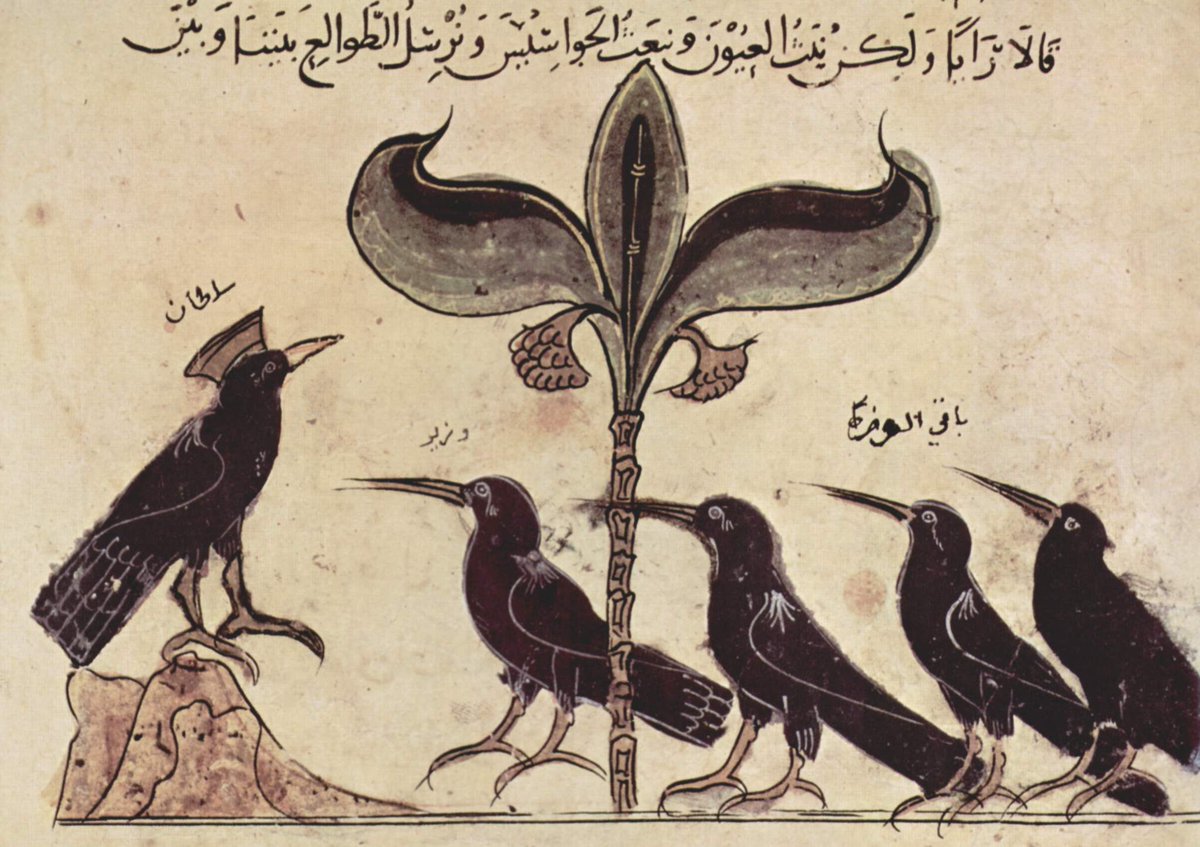 قَالَا رَايًا وَلَكِنْ نَبُثُّ العُيُوْنَ وَنبعَثُ الجَوَاسِيْسَ وَنُرْسِلُ الطَّوالِعِ بَيْنَنَا وَبَيْنَ
سلطان
وزير
باقي الوزرا